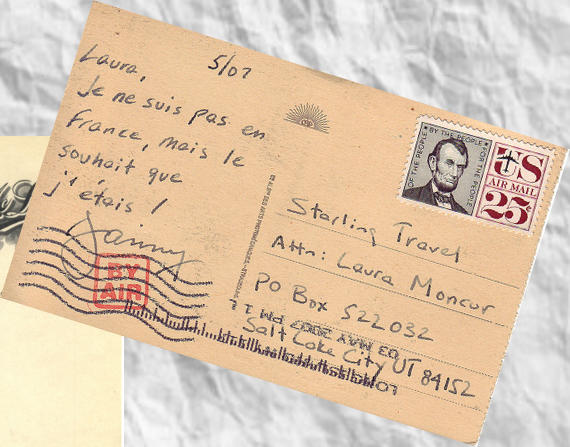 Laura,
5/07
Je ne suis pas en
France, mais le
souhait que
j'étais !
BY AIR
OF THE PEOPLE ★ BY THE PEOPLE ★ FOR THE PEOPLE
US
AIR MAIL
25
Starling Travel
Attn: Laura Moncur
PO Box 522032
Salt Lake City UT 84152
03 MAY 2007 PM